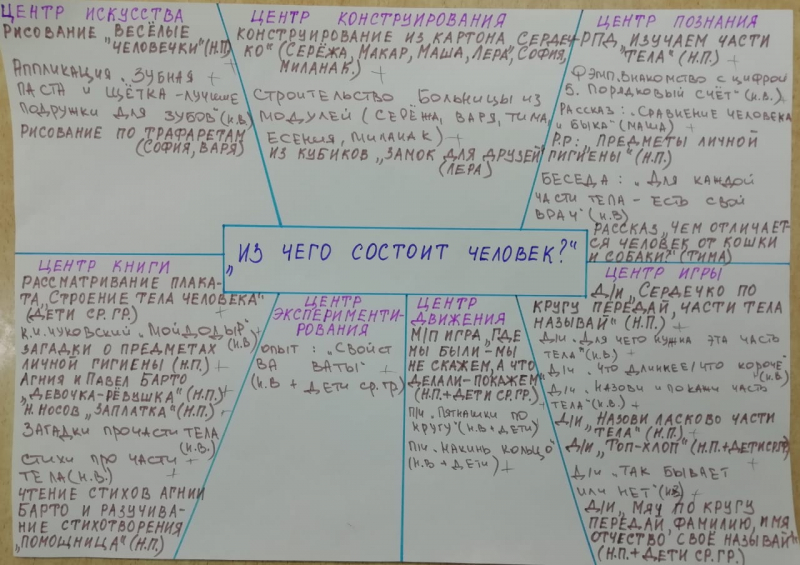 ЦЕНТР ИСКУССТВА
РИСОВАНИЕ „ВЕСЁЛЫЕ
ЧЕЛОВЕЧКИ" (Н.П)
АППЛИКАЦИЯ „ЗУБНАЯ +
ПАСТА И ЩЁТКА - ЛУЧШИЕ
ПОДРУЖКИ ДЛЯ ЗУБОВ" (Н.В.)
РИСОВАНИЕ ПО ТРАФАРЕТАМ
(СОФИЯ, ВАРЯ)
ЦЕНТР КОНСТРУИРОВАНИЯ
КОНСТРУИРОВАНИЕ ИЗ КАРТОНА „СЕРДЕЧ-
КО" (СЕРЁЖА, МАКАР, МАША, ЛЕРА, СОФИЯ,
МИЛАНА К.) +
СТРОИТЕЛЬСТВО БОЛЬНИЦЫ ИЗ
МОДУЛЕЙ (СЕРЁЖА, ВАРЯ, ТИМА,
ЕСЕНИЯ, МИЛАНА К) +
ИЗ КУБИКОВ „ЗАМОК ДЛЯ ДРУЗЕЙ"
(ЛЕРА)
ЦЕНТР ПОЗНАНИЯ
РПД „ИЗУЧАЕМ ЧАСТИ
ТЕЛА" (Н.П.) +
ФЭМП „ЗНАКОМСТВО С ЦИФРОЙ
5. ПОРЯДКОВЫЙ СЧЁТ" (Н.В.) +
РАССКАЗ: „СРАВНЕНИЕ ЧЕЛОВЕКА
И БЫКА" (МАША) +
Р.Р: „ПРЕДМЕТЫ ЛИЧНОЙ
ГИГИЕНЫ" (Н.П)
БЕСЕДА: „ДЛЯ КАЖДОЙ
ЧАСТИ ТЕЛА - ЕСТЬ СВОЙ
ВРАЧ" (Н.В) +
РАССКАЗ „ЧЕМ ОТЛИЧАЕТ-
СЯ ЧЕЛОВЕК ОТ КОШКИ
И СОБАКИ?" (ТИМА)
„ИЗ ЧЕГО СОСТОИТ ЧЕЛОВЕК?"
ЦЕНТР КНИГИ
РАССМАТРИВАНИЕ ПЛАКА-
ТА „СТРОЕНИЕ ТЕЛА ЧЕЛОВЕКА"
(ДЕТИ СР. ГР.)
К.И. ЧУКОВСКИЙ „МОЙДОДЫР" +
(Н.В)
ЗАГАДКИ О ПРЕДМЕТАХ
ЛИЧНОЙ ГИГИЕНЫ (Н.П.) +
АГНИЯ И ПАВЕЛ БАРТО
„ДЕВОЧКА-РЁВУШКА" (Н.П.) +
Н. НОСОВ „ЗАПЛАТКА" (Н.П.) +
ЗАГАДКИ ПРО ЧАСТИ ТЕЛА
(Н.В.)
СТИХИ ПРО ЧАСТИ +
ТЕЛА (Н.В.) +
ЧТЕНИЕ СТИХОВ АГНИИ
БАРТО И РАЗУЧИВА-
НИЕ СТИХОТВОРЕНИЯ
„ПОМОЩНИЦА" (Н.П.)
ЦЕНТР
ЭКСПЕРИМЕНТИ-
РОВАНИЯ
ОПЫТ: „СВОЙСТ
ВА ВАТЫ" +
(Н.В + ДЕТИ СР. ГР)
ЦЕНТР
ДВИЖЕНИЯ
М/П ИГРА „ГДЕ
МЫ БЫЛИ - МЫ
НЕ СКАЖЕМ, А ЧТО
ДЕЛАЛИ - ПОКАЖЕМ"
(Н.П. + ДЕТИ СР. ГР.)
П/И „ПЯТНАШКИ ПО
КРУГУ" (Н.В + ДЕТИ)
П/И „НАКИНЬ КОЛЬЦО"
(Н.В + ДЕТИ) +
ЦЕНТР ИГРЫ
Д/И „СЕРДЕЧКО ПО
КРУГУ ПЕРЕДАЙ, ЧАСТИ ТЕЛА
НАЗЫВАЙ" (Н.П.) +
Д/И „ДЛЯ ЧЕГО НУЖНА ЭТА ЧАСТЬ
ТЕЛА" (Н.В) +
Д/И „ЧТО ДЛИННЕЕ / ЧТО КОРОЧЕ"
(Н.В)
Д/И „НАЗОВИ И ПОКАЖИ ЧАСТЬ
ТЕЛА" (Н.В.) +
Д/И „НАЗОВИ ЛАСКОВО ЧАСТИ
ТЕЛА" (Н.П.) +
Д/И „ТОП-ХЛОП" (Н.П. + ДЕТИ СР. ГР.)
Д/И „ТАК БЫВАЕТ
ИЛИ НЕТ" (Н.В) +
Д/И „МЯЧ ПО КРУГУ
ПЕРЕДАЙ, ФАМИЛИЮ, ИМЯ,
ОТЧЕСТВО СВОЁ НАЗЫВАЙ"
(Н.П. + ДЕТИ СР. ГР.)